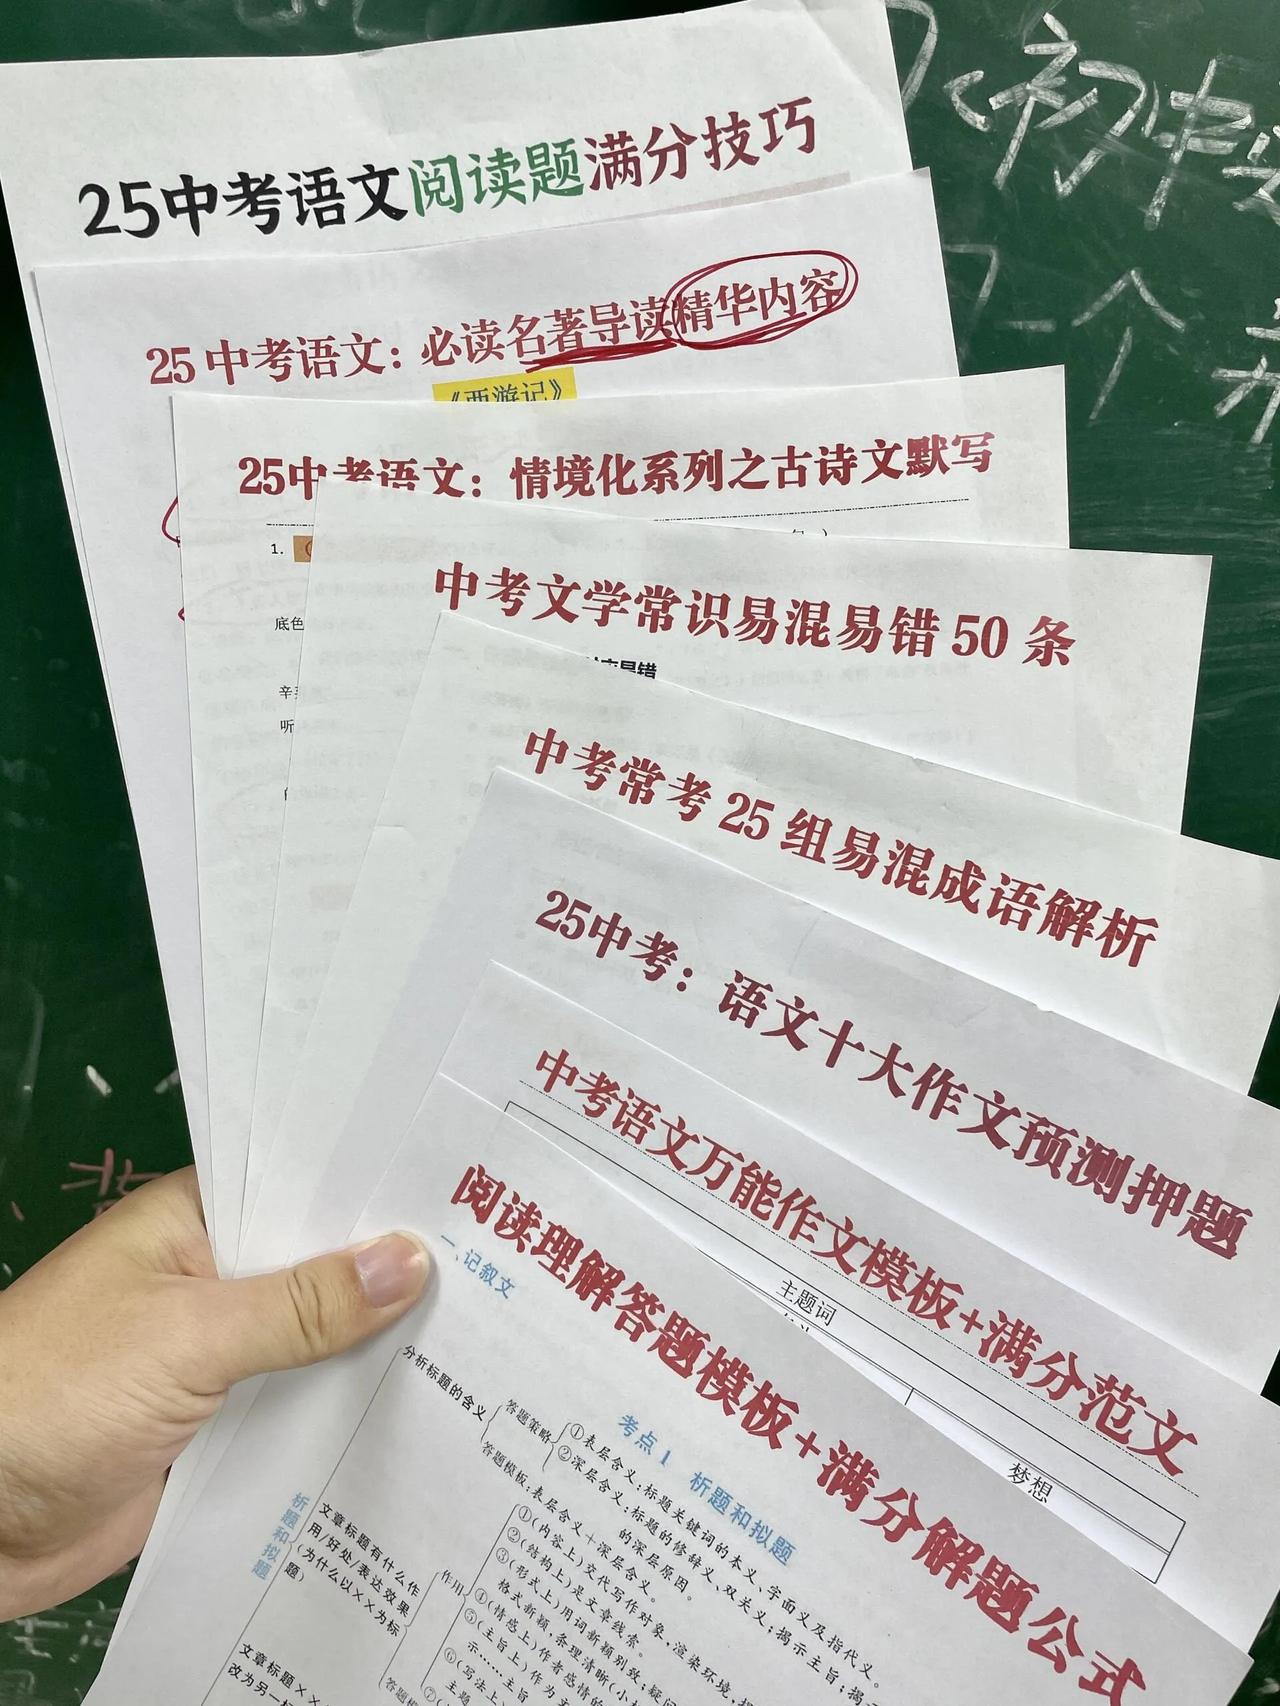 初中
个
25中考语文阅读题满分技巧
25中考语文：必读名著导读精华内容
《西游记》
25中考语文：情境化系列之古诗文默写
1.
底色
听
中考文学常识易混易错50条
中考常考25组易混成语解析
25中考：语文十大作文预测押题
中考语文万能作文模板+满分范文
主题词
梦想
阅读理解答题模板+满分解题公式
一、记叙文
考点1 析题和拟题
析题和拟题
分析标题的含义
答题策略
①表层含义：标题关键词的本义、字面义及指代义。
②深层含义：标题的修辞义、双关义；揭示主旨；揭
的深层原因。
答题模板：表层含义＋深层含义。
文章标题有什么作
用/好处/表达效果
(为什么以××为标
题)
作用
①(内容上)交代写作对象，渲染环境，
②(结构上)是文章线索。
③(形式上)用词新颖别致；疑问
格式新颖，条理清晰(小标
④(情感上)作者感情的
⑤(主旨上)作为
示……主旨
⑥(写法上)
主题
⑦
答题模板
文章标题××
改为另一标